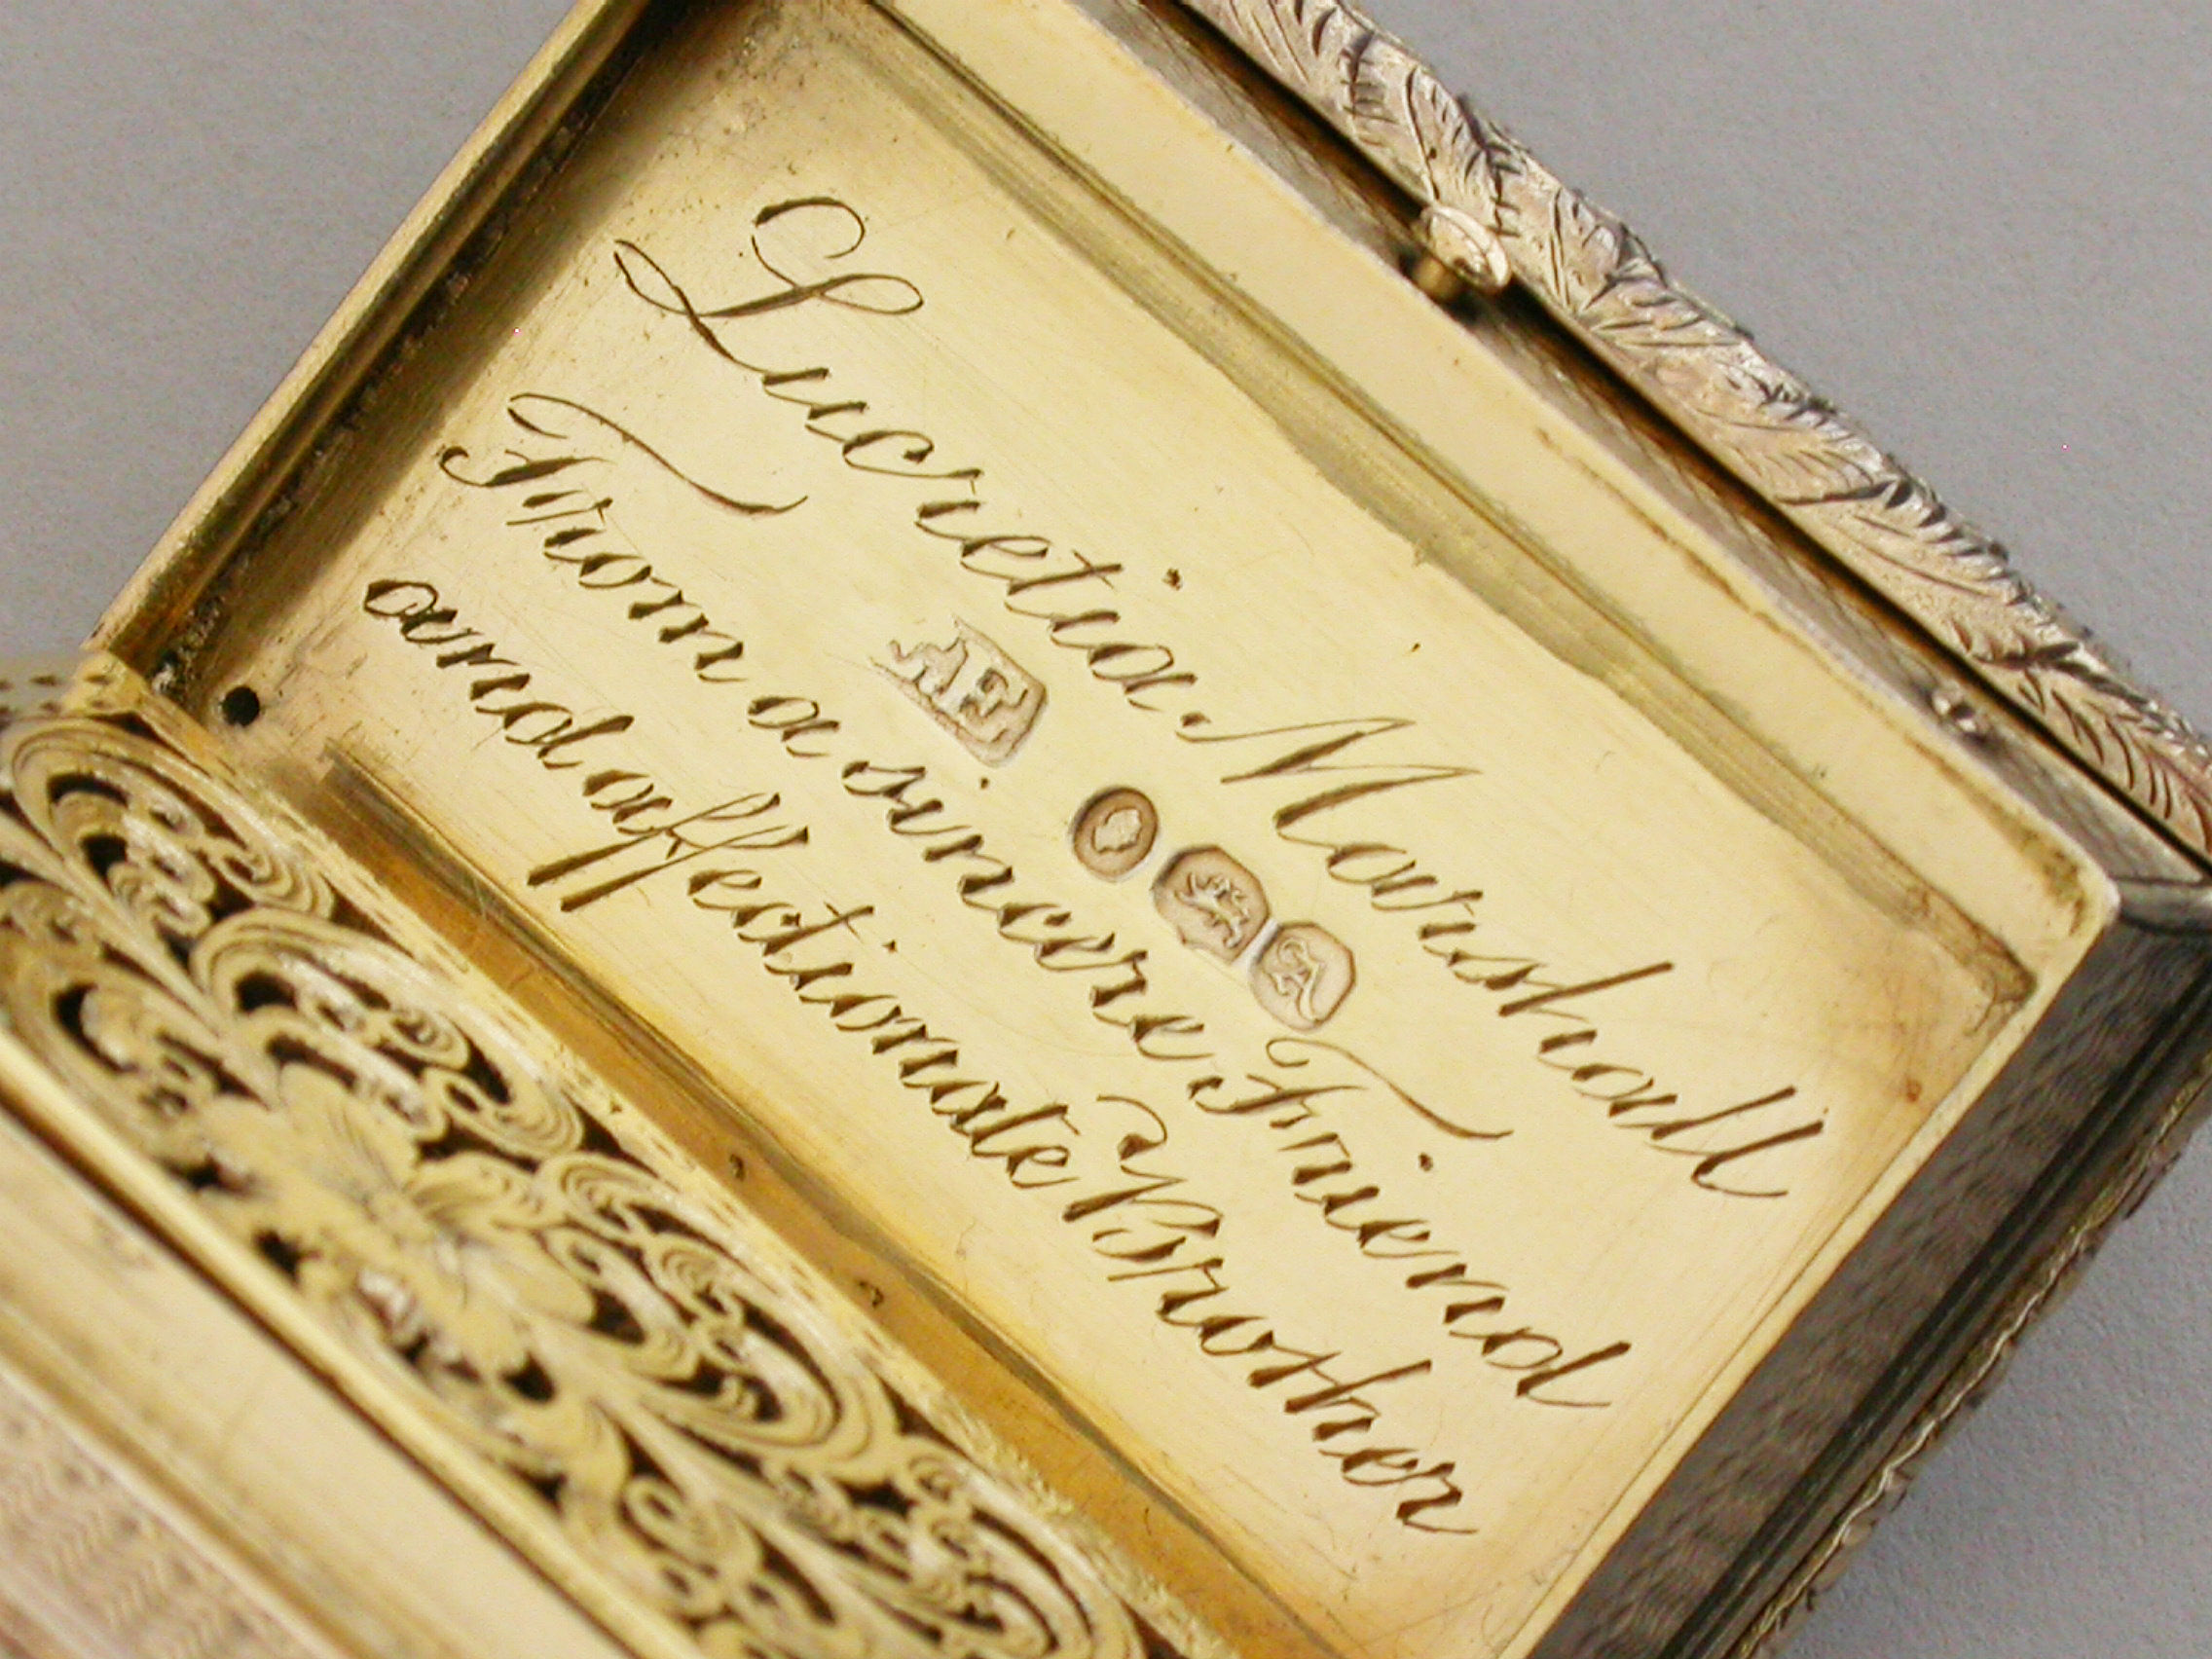 Lucretia Marshall
From a sincere Friend
and affectionate Brother